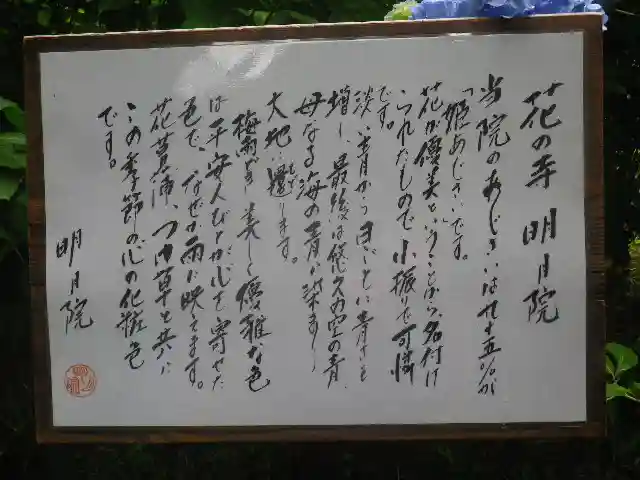 花の寺 明月院
当院のあじさいは九十五%が
「姫あじさい」です。
花が優美ということから、名付け
られたもので小振りで可憐
です。
淡い青から日ごとに青さを
増し、最後は悠久の空の青、
母なる海の青に染まり
大地に還します。
梅雨どき美しく優雅な色
は平安人びとが心を寄せた
色で、なぜか雨に映えます。
花菖蒲、つゆ草と共に
この季節の心の化粧色
です。
明月院